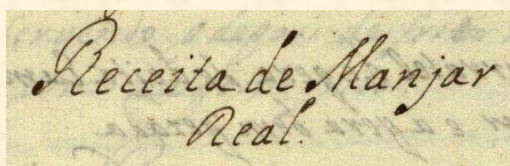 Receita de Manjar
Real.